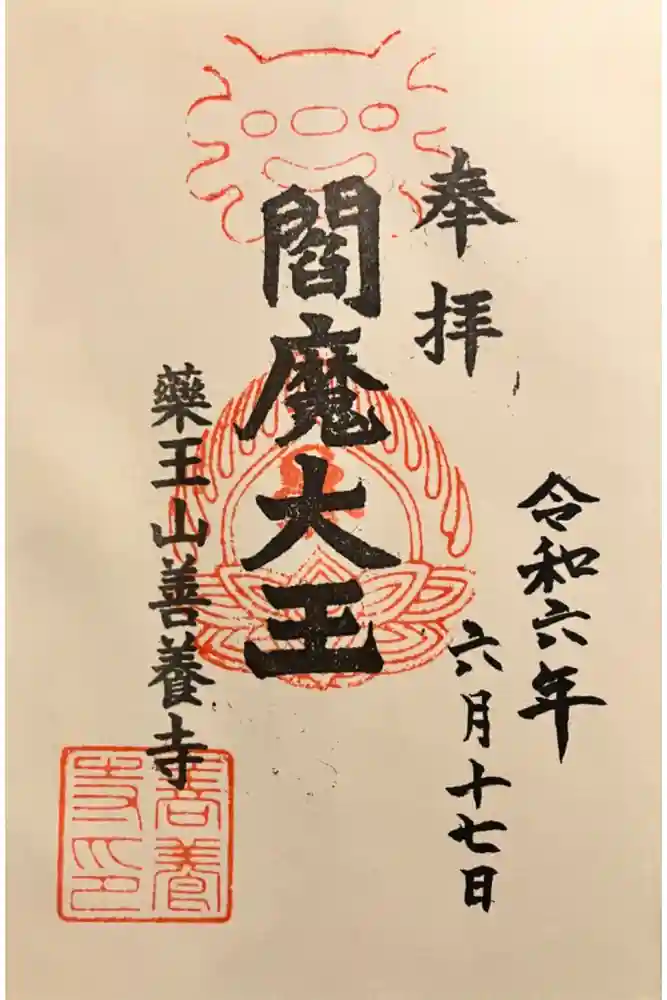 奉拝
令和六年
六月十七日
閻魔大王
薬王山善養寺
善養
寺印